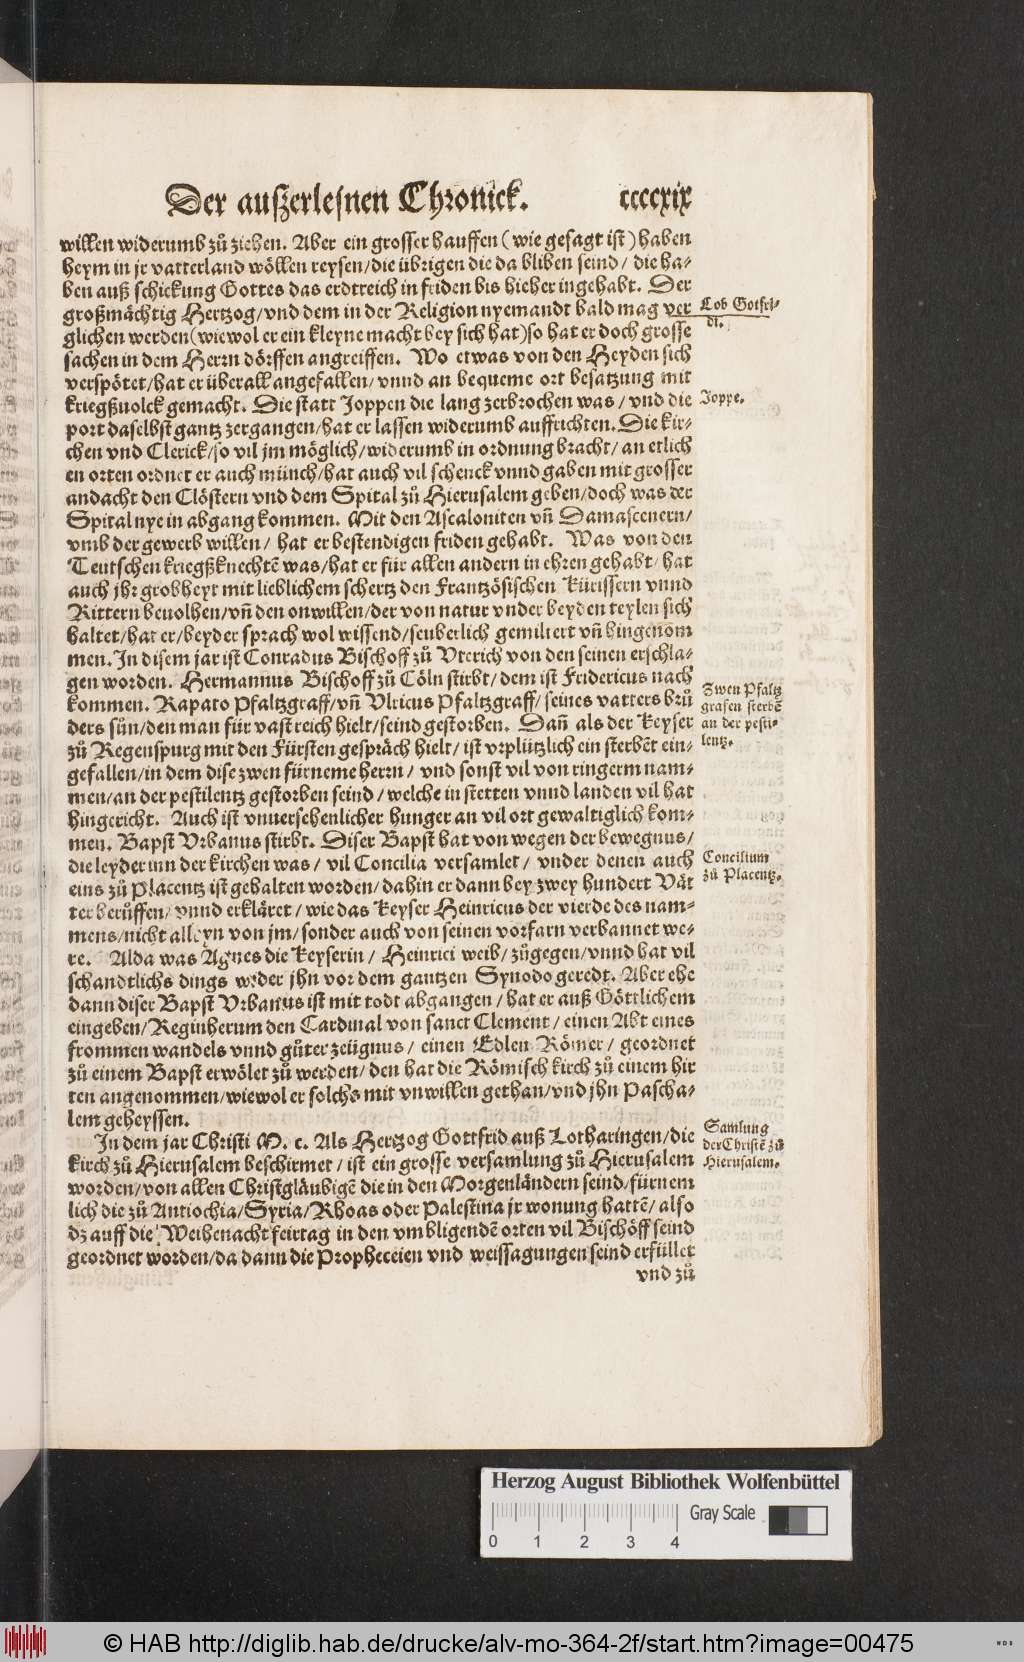 Der auſzerleſnen Chronick. ccccxix
willen widerumb zů ziehen. Aber ein groſſer hauffen ( wie geſagt iſt ) haben
heym in jr vatterland wöllen reyſen/ die übrigen die da bliben ſeind/ die ha-
ben auß ſchickung Gottes das erdtreich in friden bis hieher ingehabt. Der
großmächtig Hertzog/ vnd dem in der Religion nyemandt bald mag ver
glichen werden (wiewol er ein kleyne macht bey ſich hat) ſo hat er doch groſſe
ſachen in dem Herrn dörffen angreiffen. Wo etwas von den Heyden ſich
verſpötet/ hat er überall angefallen/ vnnd an bequeme ort beſatzung mit
kriegßuolck gemacht. Die ſtatt Joppen die lang zerbrochen was/ vnd die
port daſelbſt gantz zergangen/ hat er laſſen widerumb auffrichten. Die kir-
chen vnd Clerick/ ſo vil jm möglich/ widerumb in ordnung bracht/ an etlich
en orten ordnet er auch münch/ hat auch vil ſchenck vnnd gaben mit groſſer
andacht den Clöſtern vnd dem Spital zů Hieruſalem geben/ doch was der
Spital nye in abgang kommen. Mit den Aſcaloniten vñ Damaſcenern/
vmb der gewerb willen/ hat er beſtendigen friden gehabt. Was von den
Teutſchen kriegßknechtẽ was/ hat er für allen andern in ehren gehabt/ hat
auch jhr grobheyt mit lieblichem ſchertz den Frantzöſiſchen Küriſſern vnnd
Rittern beuolhen/ vñ den onwillen/ der von natur vnder beyden teylen ſich
haltet/ hat er/ beyder ſprach wol wiſſend/ ſeuberlich gemiltert vñ hingenom
men. In diſem jar iſt Conradus Biſchoff zů Vterich von den ſeinen erſchla-
gen worden. Hermannus Biſchoff zů Cöln ſtirbt/ dem iſt Fridericus nach
kommen. Rapato Pfaltzgraff/ vñ Vlricus Pfaltzgraff/ ſeines vatters brů
ders ſůn/ den man für vaſt reich hielt/ ſeind geſtorben. Dañ als der Keyſer
zů Regenſpurg mit den Fürſten geſpräch hielt/ iſt vrplützlich ein ſterbẽt ein-
gefallen/ in dem diſe zwen fürneme herrn/ vnd ſonſt vil von ringerm nam-
men/ an der peſtilentz geſtorben ſeind/ welche in ſtetten vnnd landen vil hat
hingericht. Auch iſt vnuerſehenlicher hunger an vil ort gewaltiglich kom-
men. Bapſt Vrbanus ſtirbt. Diſer Bapſt hat von wegen der bewegnus/
die leyder inn der kirchen was/ vil Concilia verſamlet/ vnder denen auch
eins zů Placentz iſt gehalten worden/ dahin er dann bey zwey hundert Vät
ter berůffen/ vnnd erkläret/ wie das Keyſer Heinricus der vierde des nam-
mens/ nicht alleyn von jm/ ſonder auch von ſeinen vorfarn verbannet we-
re. Alda was Agnes die Keyſerin/ Heinrici weib/ zůgegen/ vnnd hat vil
ſchandtlichs dings wider jhn vor dem gantzen Synodo geredt. Aber ehe
dann diſer Bapſt Vrbanus iſt mit todt abgangen/ hat er auß Göttlichem
eingeben/ Reginherum den Cardinal von ſanct Clement/ einen Abt eines
frommen wandels vnnd gůter zeügnus/ einen Edlen Römer/ geordnet
zů einem Bapſt erwölet zů werden/ den hat die Römiſch kirch zů einem hir
ten angenommen/ wiewol er ſolchs mit vnwillen gethan/ vnd jhn Paſcha-
lem geheyſſen.
In dem jar Chriſti M. c. Als Hertzog Gottfrid auß Lotharingen/ die
kirch zů Hieruſalem beſchirmet/ iſt ein groſſe verſamlung zů Hieruſalem
worden/ von allen Chriſtgläubigẽ die in den Morgenländern ſeind/ fürnem
lich die zů Antiochia/ Syria/ Rhoas oder Paleſtina jr wonung hattẽ/ alſo
dz auff die Weihenacht feirtag in den vmbligendẽ orten vil Biſchöff ſeind
geordnet worden/ da dann die Propheceien vnd weiſſagungen ſeind erfüllet
vnd zů
Lob Gotfri-
di.
Joppe.
Zwen Pfaltz
grafen ſterbẽ
an der peſti-
lentz.
Concilium
zů Placentz.
Samlung
der Chriſtẽ zů
Hieruſalem.
Herzog August Bibliothek Wolfenbüttel
Gray Scale
0 1 2 3 4
© HAB http://diglib.hab.de/drucke/alv-mo-364-2f/start.htm?image=00475